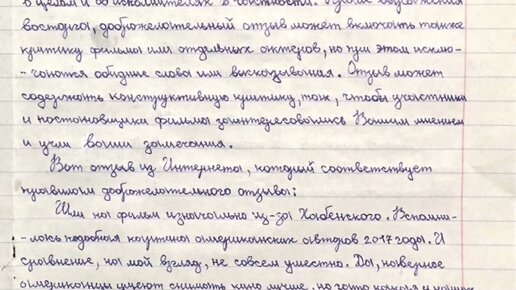 в целом и об исполнителях в частности. Кроме выражения
восторга, доброжелательный отзыв может включать также
критику фильма или отдельных актеров, но при этом исклю-
-чаются обидные слова или высказывания. Отзыв может
содержать конструктивную критику, так, чтобы участники
и постановщики фильма заинтересовались Вашим мнением
и учли Ваши замечания.
Вот отзыв из Интернета, который соответствует
правилам доброжелательного отзыва:
Шли на фильм изначально из-за Хабенского. Вспомни-
-лась подобная картина американских авторов 2017 года. И
сравнение, на мой взгляд, не совсем уместно. Да, наверное
американцы умеют снимать кино лучше, но зато какая у наших